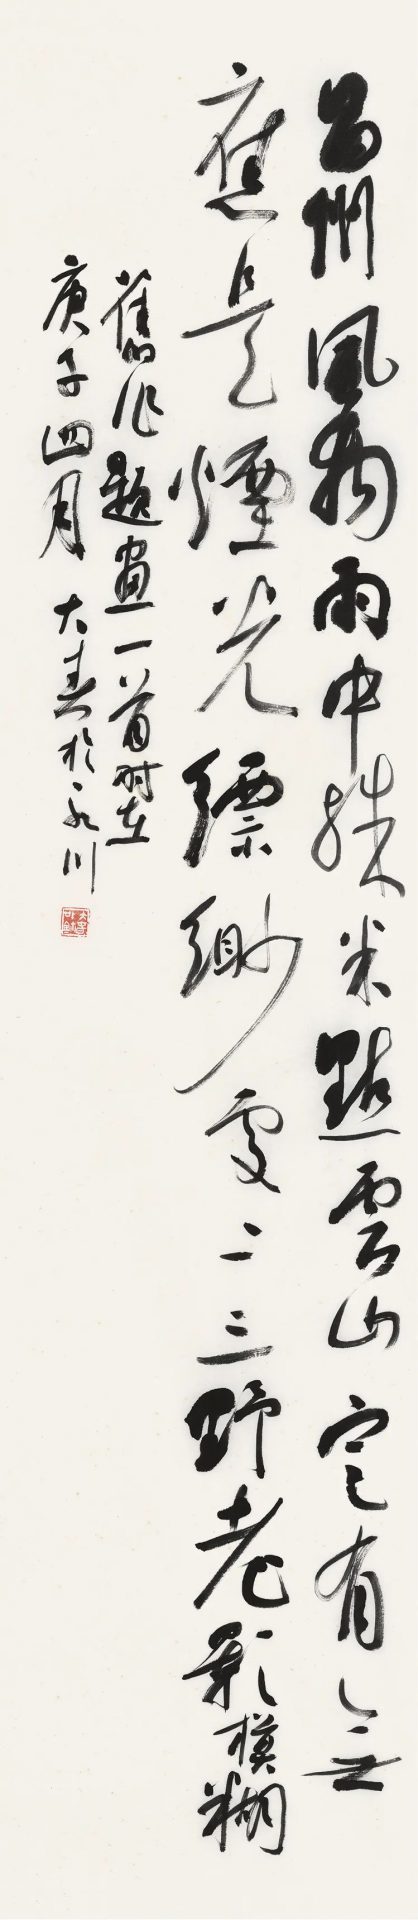 昌州風物雨中殊米點雲山定有無
應是煙光縹緲處二三野老影模糊
舊作題畫一首時在
庚子四月大春於永川